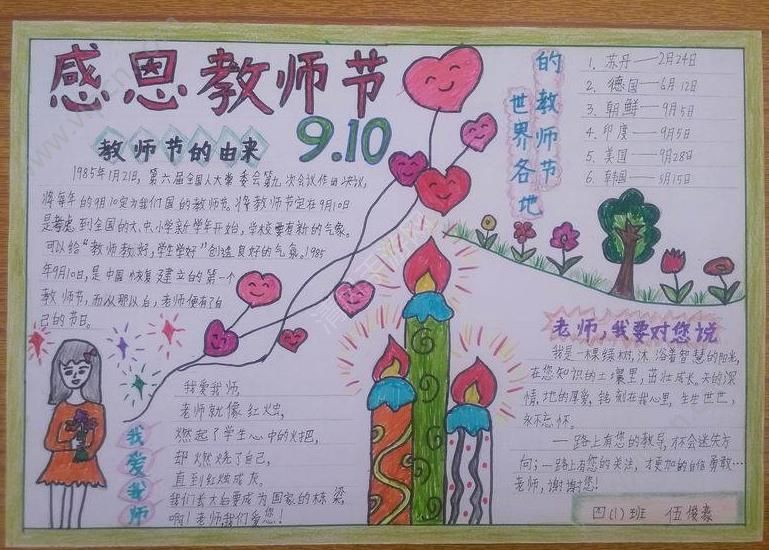 感恩教师节
9.10
教师节的由来
1985年1月21日,第六届全国人大常委会第九次会议作出决议,
将每年的9月10定为我们国的教师节。将教师节定在9月10日
是考虑到全国的大、中、小学新学年开始,学校要有新的气象。
可以给"教师教好,学生学好"创造良好的气氛。1985
年9月10日,是中国恢复建立的第一个
教师节,而从那以后,老师便有了自
己的节日。
世界各地的教师节
1、苏丹——2月24日
2、德国——6月12日
3、朝鲜——9月5日
4、印度——9月5日
5、美国——9月28日
6、韩国——5月15日
我爱我师
我爱我师,
老师就像红烛,
燃起了学生心中的火把,
却燃烧了自己,
直到红烛成灰。
我们长大白要成为国家的栋梁,
啊!老师我们爱您!
老师,我要对您说
我是一棵绿树,沐浴着智慧的阳光,
在您知识的土壤里,茁壮成长。天的深
情,地的厚爱,铭刻在我心里,生生世世,
永不忘怀。
一路上有您的教导,才不会迷失方
向;一路上有您的关注,才更加的自信勇敢…
老师,谢谢您!
四(1)班 伍俊豪